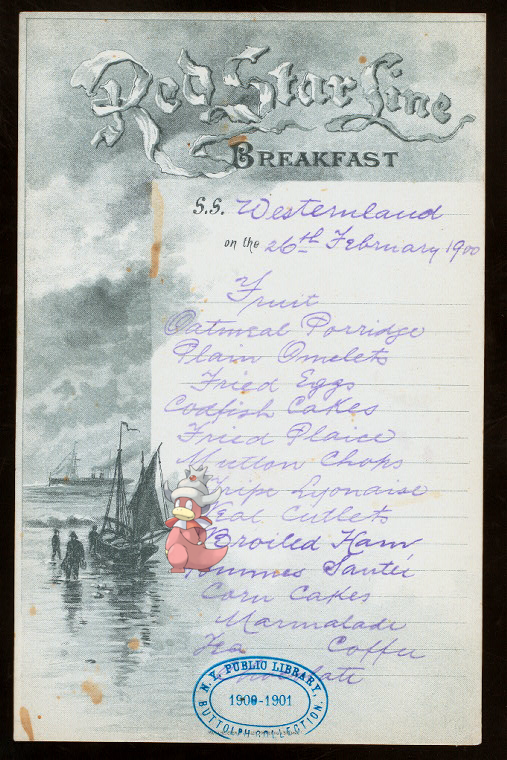 Red Star Line
BREAKFAST
S.S. Westernland
on the 26th February 1900
Fruit
Oatmeal Porridge
Plain Omelets
Fried Eggs
Codfish Cakes
Fried Plaice
Mutton Chops
Tripe Lyonaise
Veal Cutlets
Broiled Ham
Pommes Sauteé
Corn Cakes
Marmalade
Tea Coffee
N.Y. PUBLIC LIBRARY,
1900-1901
BUTTOLPH COLLECTION.